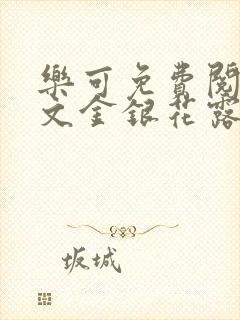 樂可免費閱
文金銀花露
坂城